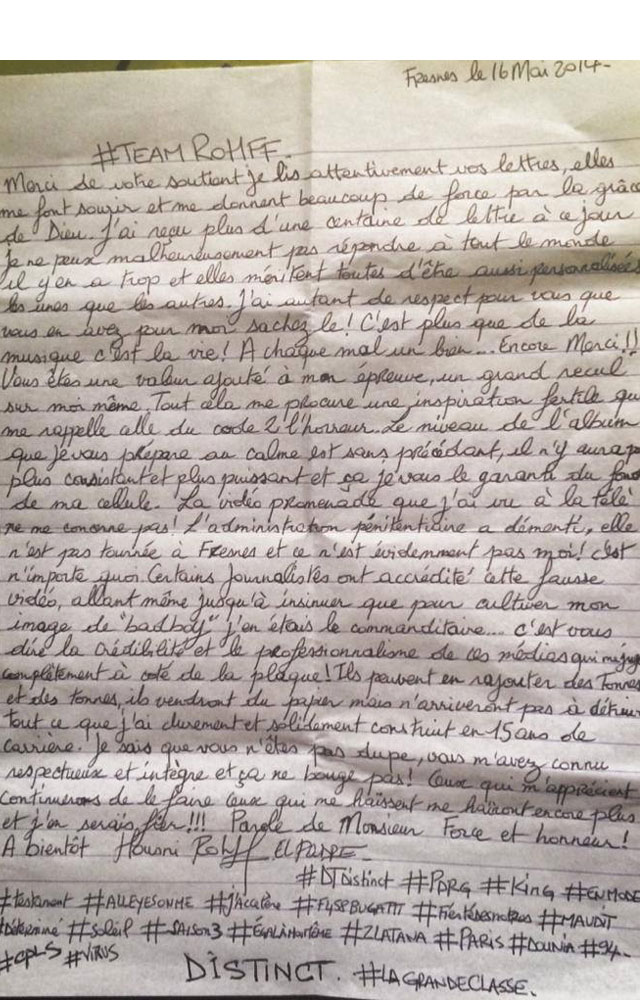 Fresnes le 16 Mai 2014-
#TEAM ROHFF.
Merci de votre soutient je lis attentivement vos lettres, elles
me font sourir et me donnent beaucoup de force par la grâce
de Dieu. J'ai reçu plus d'une centaine de lettre à ce jour
je ne peux malheureusement pas répondre à tout le monde
il y'en a trop et elles méritent toutes d'être aussi personnalisées
les unes que les autres. J'ai autant de respect pour vous que
vous en avez pour moi sachez le! C'est plus que de la
musique c'est la vie! A chaque mal un bien... Encore Merci!!
Vous êtes une valeur ajouté à mon épreuve, un grand recul
sur moi même. Tout cela me procure une inspiration fertile qui
me rappelle celle du code 2 l'horreur. Le niveau de l'album
que je vous prépare au calme est sans précédant, il n'y aura p
plus consistant et plus puissant et ça je vous le garanti du fond
de ma cellule. La vidéo promenade que j'ai vu à la télé
ne me concerne pas! L'administration pénitentiaire a démenti, elle
n'est pas tournée à Fresnes et ce n'est évidemment pas moi! c'est
n'importe quoi. Certains journalistes ont accrédité cette fausse
vidéo, allant même jusqu'à insinuer que pour cultiver mon
image de "badboy" j'en étais le commanditaire.... c'est vous
dire la crédibilité et le professionnalisme de ces médias qui
complètement à coté de la plaque! Ils peuvent en rajouter des Tonnes
et des tonnes, ils vendront du papier mais n'arriveront pas à détruire
tout ce que j'ai durement et solidement construit en 15 ans de
carrière. Je sais que vous n'êtes pas dupe, vous m'avez connu
respectueux et intègre et ça ne bouge pas! Ceux qui m'apprécient
continuerons de le faire ceux qui me haïssent me haïront encore plus
et j'en serais fier!!! Parole de Monsieur Force et honneur!
A bientôt Housni Rohff EL PADRE
#DJDistinct #PDRG #King #ENMODE
#testament #ALLEYESONME #j'Acatène #F4SPBUGATTI #MAUDIT
#Déterminé #Soleil #SAISON3 #ZLATANA #PARIS #DOUNIA #94-
#CPLS #VIRUS
DISTINCT. #LAGRANDECLASSE.